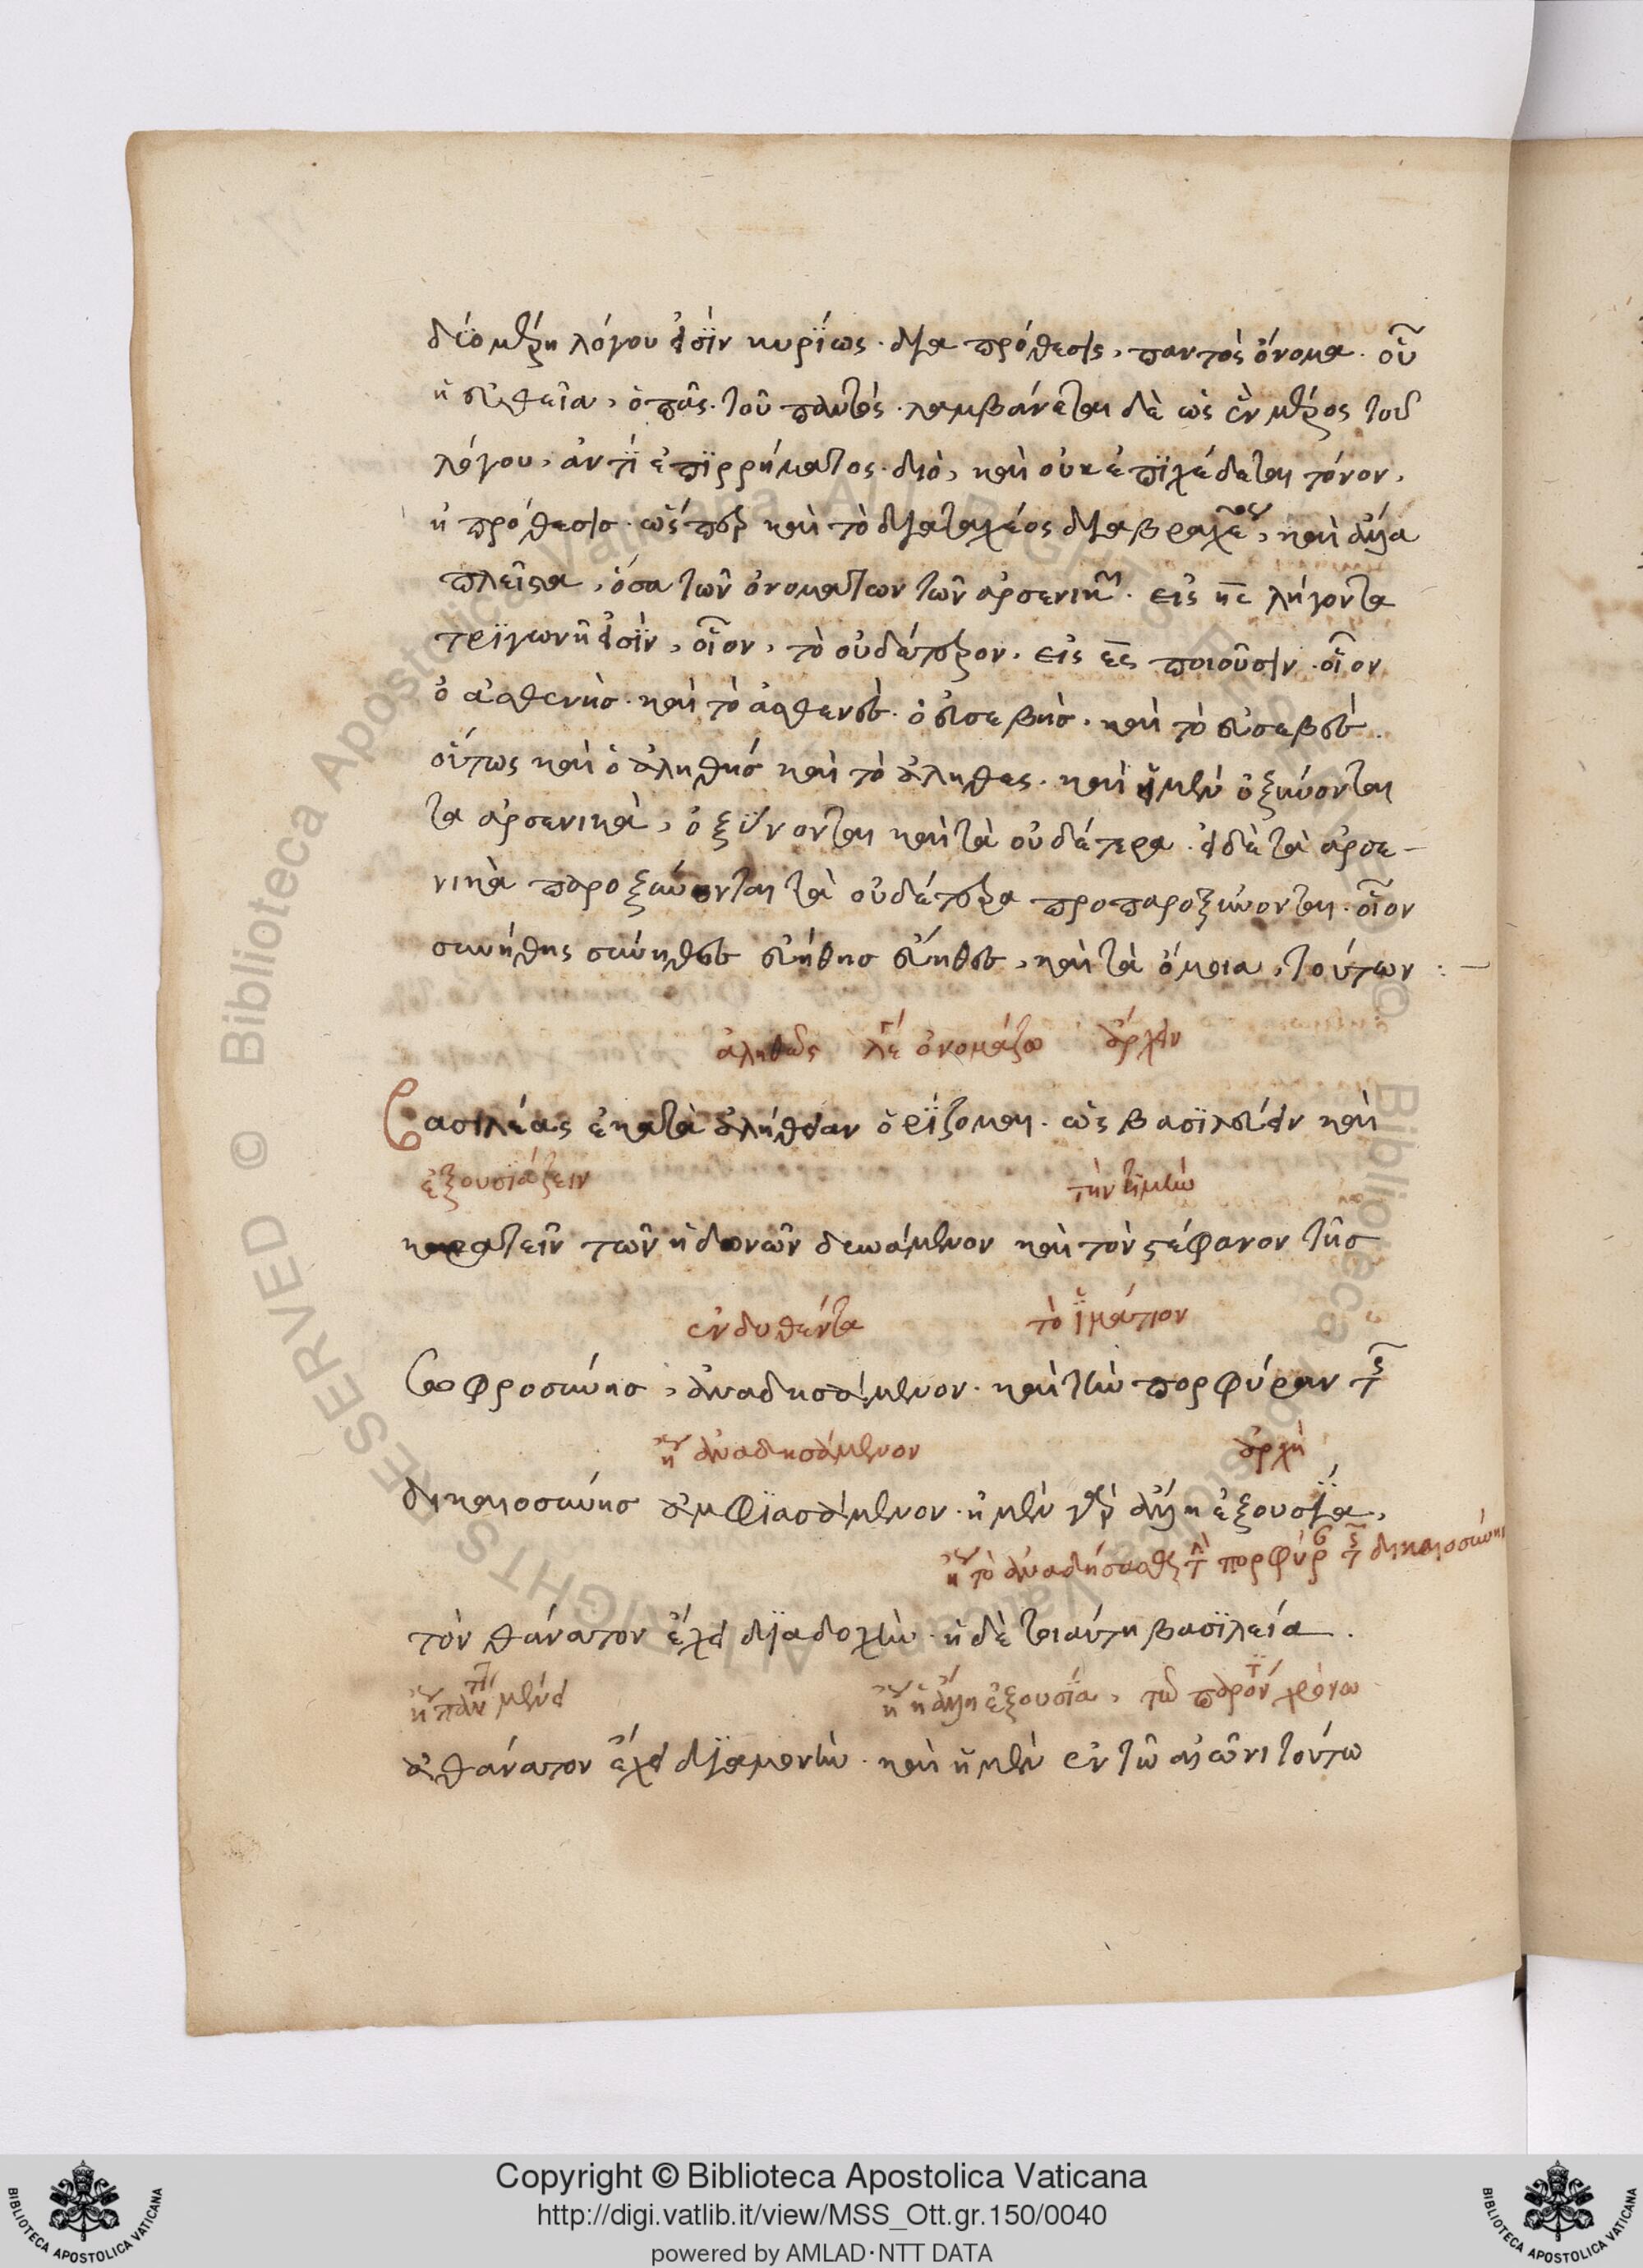 δύο μέρη λόγου εἰσὶν κυρίως. δϊα πρόθεσις, παντὸς ὄνομα. οὗ
ἡ εὐθεῖα, ὁ πᾶς. τοῦ παντός. λαμβάνεται δὲ ὡς ἓν μέρος τοῦ
λόγου, ἀντῒ ἐπϊρρήματος. διὸ, καὶ οὐκ ἐπϊχέδεται τόνον,
ἡ πρόθεσις. ὥσπερ καὶ τὸ διαταχέος διαβραχέος, καὶ ἄλλα
πλεῖστα, ὅσα τῶν ὀνομάτων τῶν ἀρσενικῶν. εἰς ης λήγοντα
τρϊγωνῆ εἰσϊν, οἷον, τὸ οὐδέτερον. εἰς ες ποιοῦσιν. οἷον
ὁ ἀσθενὴς. καὶ τὸ ἀσθενὲς. ὁ εὐσεβὴς. καὶ τὸ εὐσεβὲς.
οὕτως καὶ ὁ ἀληθής καὶ τὸ ἀληθες. καὶ ἢ μὲν ὀξύνονται
τα ἀρσενικὰ, ὀξΰνονται καὶ τὰ οὐδέτερα. εἰ δὲ τὰ ἀρσε-
νικὰ παροξύνονται τὰ οὐδέτερα προπαροξύνονται. οἷον
συνήθης σύνηθες εὐήθης εὔηθες, καὶ τὰ ὅμοια, τούτων :-
ἀληθῶς λέγω ὀνομάζω ἄρχειν
Βασιλέας ἐκατὰ ἀλήθειαν ὁρΐζομαι. ὡς βασϊλεύειν καὶ
ἐξουσϊάζειν τὴν τϊμὴν
κρατεῖν τῶν ἡδονῶν δυνάμενον καὶ τὸν στέφανον τῆς
ἐνδυθέντα τὸ ϊμάτιον
σωφροσύνης, ἀναδησάμενον. καὶ τὴν πορφύραν τῆς
ἤγουν ἀναδησάμενον ἀρχὴ
δικαιοσύνης ἀμφϊασάμενον. ἡ μὲν γὰρ ἄλλη ἐξουσΐα,
ἤγουν τὸ ἀναδήσασθαι τὴν πορφύραν τῆς δικαιοσύνης
τὸν θάνατον ἔχει δϊαδοχὴν. ἡ δὲ τοιαύτη βασϊλεία.
ἤγουν πάντοτε μένει ἤγουν ἡ ἄλλη ἐξουσΐα, τῶ παρόντι χρόνω
ἀθάνατον ἔχει δϊαμονὴν. καὶ ἡ μὲν ἐν τῶ αἰῶνι τούτω
Copyright © Biblioteca Apostolica Vaticana
http://digi.vatlib.it/view/MSS_Ott.gr.150/0040
powered by AMLAD·NTT DATA